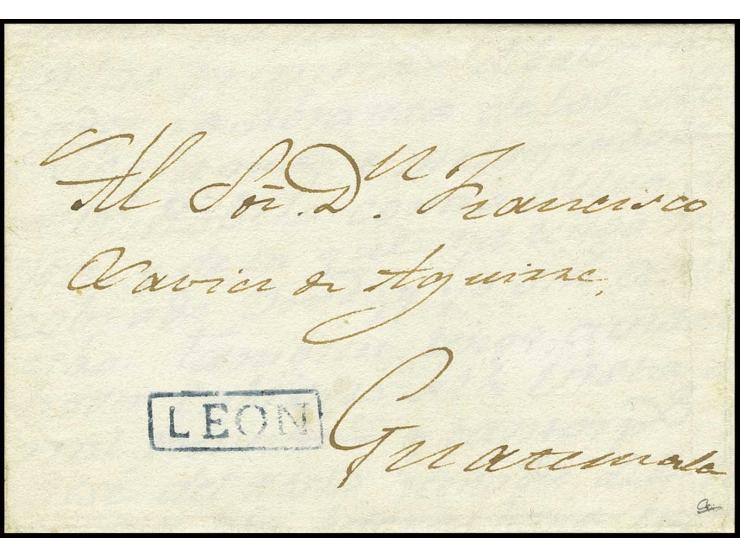 Al Sor. Dn. Francisco
Xavier de Aguirre,
Guatemala
LEON